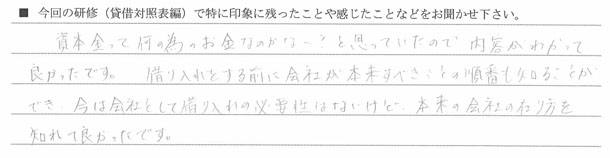 ■ 今回の研修（貸借対照表編）で特に印象に残ったことや感じたことなどをお聞かせ下さい。
資本金って何の為のお金なのかな〜？と思っていたので内容がわかって
良かったです。 借り入れをする前に会社が本来すべきことの順番も知ることが
でき、今は会社として借り入れの必要性はないけど、本来の会社の在り方を
知れて良かったです。